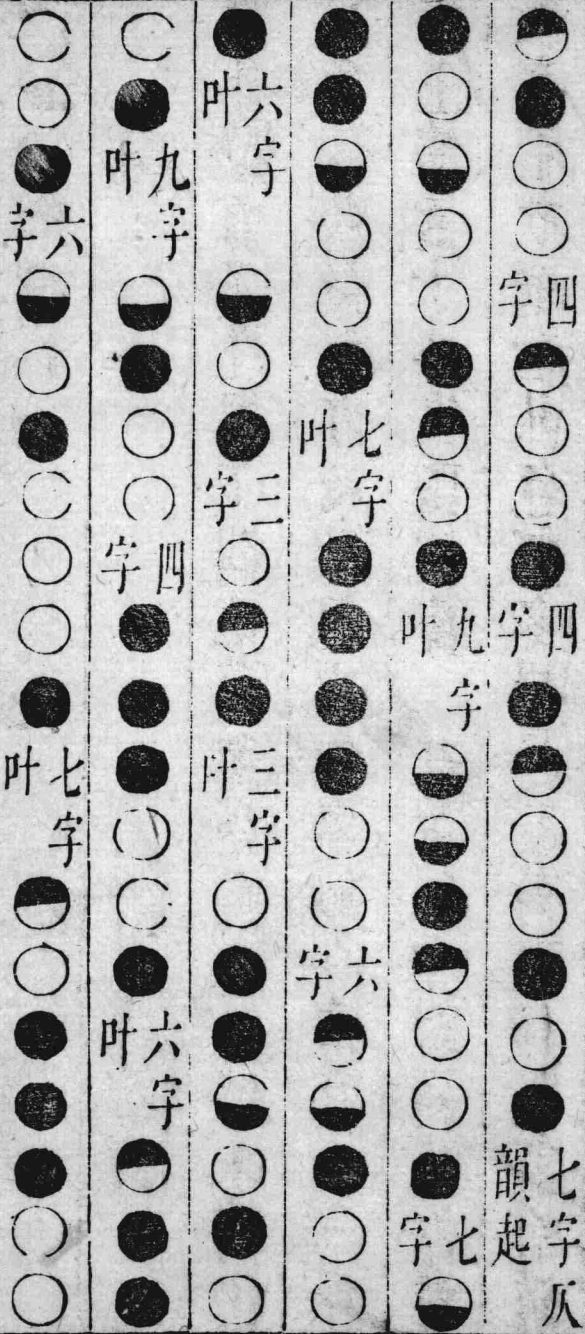 四字
四字
七字仄韻起
九字叶
七字
七字叶
六字
六字叶
三字
三字叶
九字叶
四字
六字叶
六字
七字叶